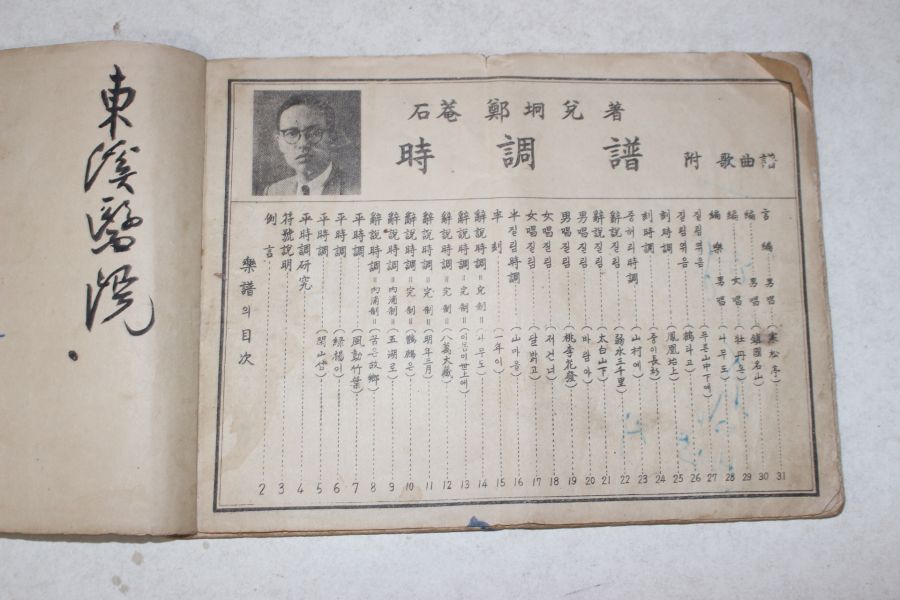 東溪醫院
石菴 鄭坰兌 著
時調譜 附 歌曲譜
樂譜의目次
例言 2
符號說明 3
平時調研究 4
平時調 (閑山섬) 5
平時調 (綠楊이) 6
平時調 (風動竹葉) 7
辭說時調=內浦制= (꿈은故鄕) 8
辭說時調=內浦制= (五湖로) 9
辭說時調=完制= (鶴鵬은) 10
辭說時調=完制= (明年三月) 11
辭說時調=完制= (八萬大藏) 12
辭說時調=完制= 13
辭說時調=完制= (나무도) 14
半刻 (一年이) 15
半질림時調 (山마을) 16
女唱질림 (달밝고) 17
女唱질림 (저건너) 18
男唱질림 (桃李花發) 19
男唱질림 (바람아) 20
辭說질림 (太白山下) 21
辭說질림 (弱水三千里) 22
중허리時調 (山村에) 23
刻時調 24
刻時調 (鳳凰坮上) 25
질림엮음 (鶴타고) 26
질림엮음 (푸른山中下에) 27
編樂 男唱 (나무도) 28
編 女唱 (牡丹은) 29
編 男唱 (鎭國名山) 30
言編 男唱 (寒松亭) 31